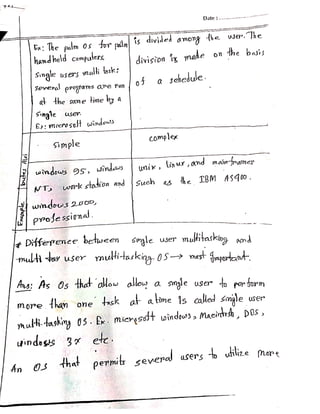 Date :
Ex: The palm OS for palm
handheld computers
Single users multi task:
several programs are run
at the same time by a
single user
Ex: microsoft windows
is divided among the user. The
division is made on the basis
of a schedule.
Simple
complex
windows 95, windows
NT, work station and
windows 2000,
professional.
unix, Linux, and mainframes
such as the IBM AS400.
* Difference between single user multitasking and
multi user multi-tasking. OS → most Important.
Ans: As OS that allow allow a single user to perform
more than one task at a time is called single user
multi-tasking OS. Ex microsoft windows, Macintosh, DOS,
windows 3x etc.
An OS that permits several users to utilize more